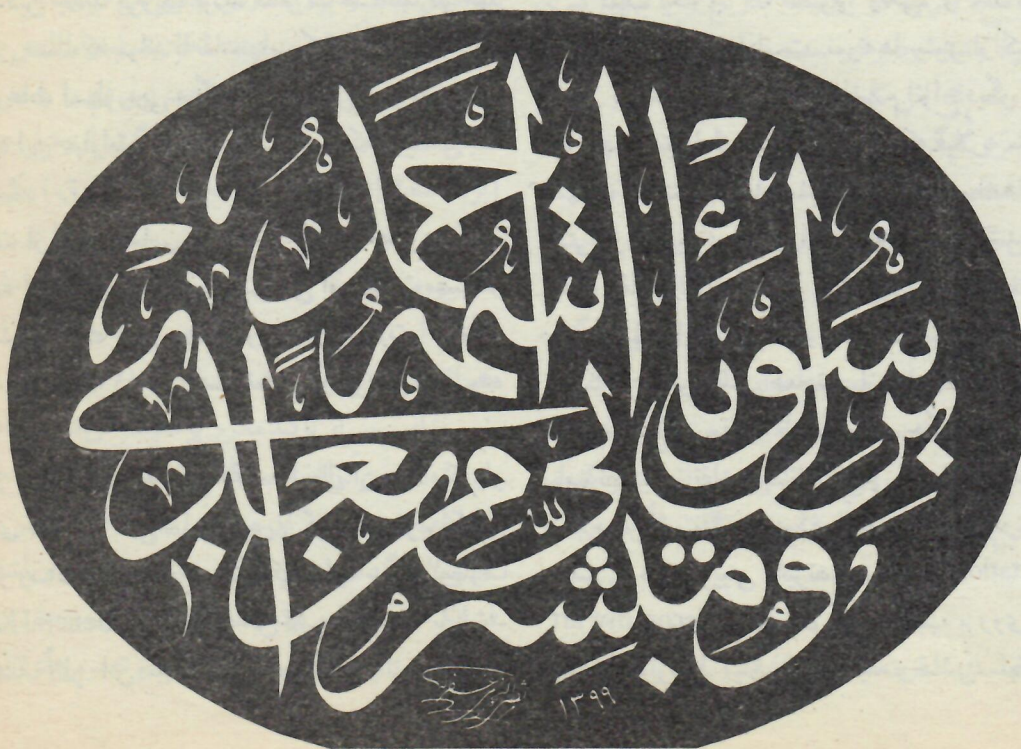 ومبشرا برسول يأتي من بعدي اسمه أحمد
١٣٩٩